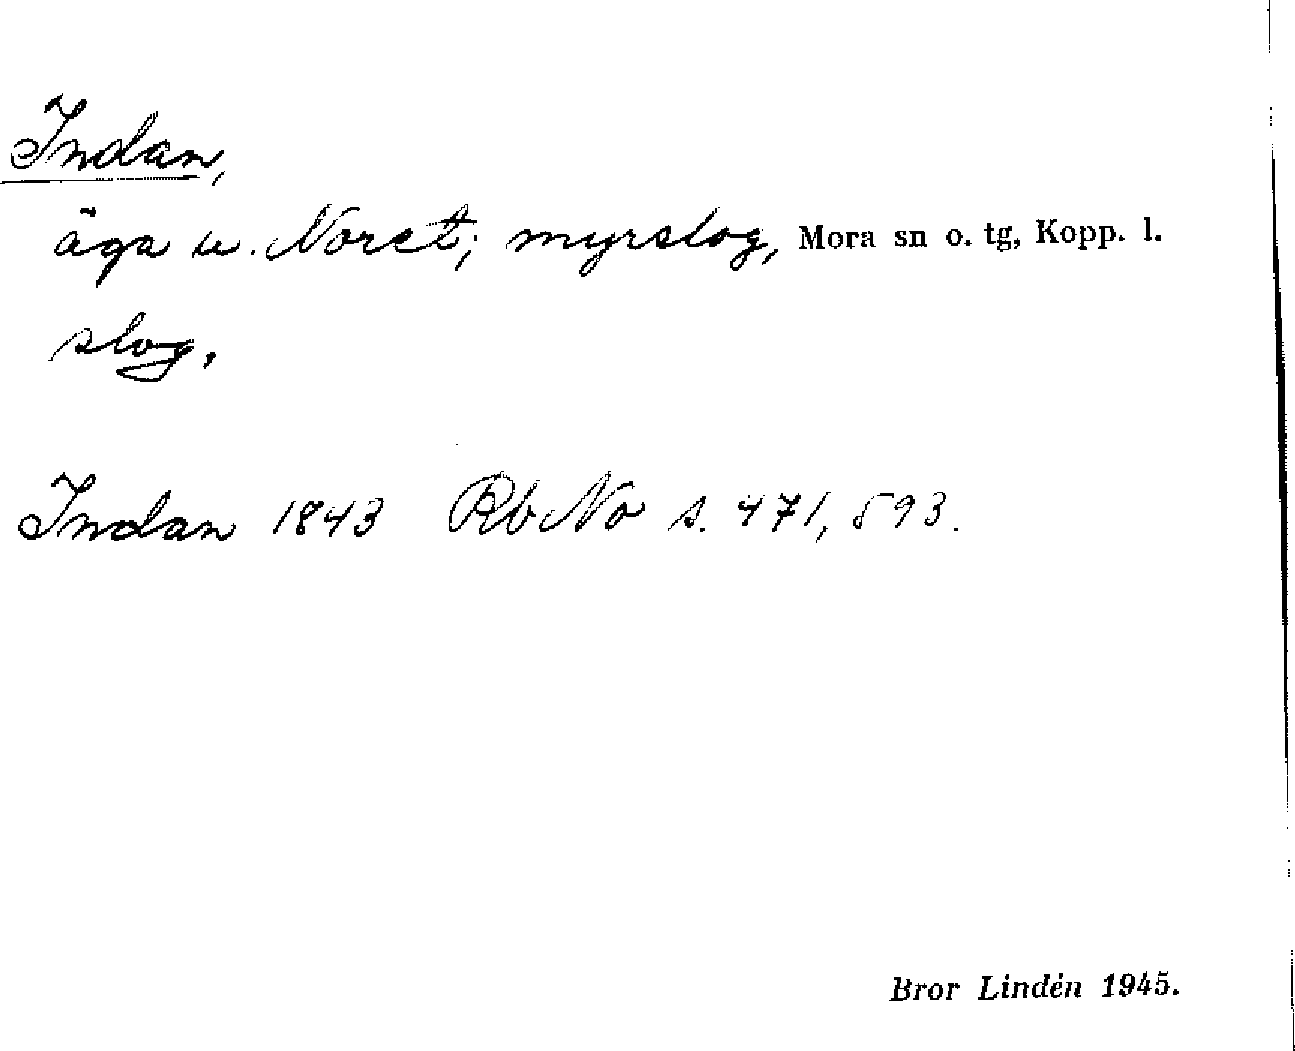 Indan,
äga u. Noret; myrslog, Mora sn o. tg, Kopp. l.
slog.
Indan 1843 Rb No s. 471, 593.
Bror Lindén 1945.